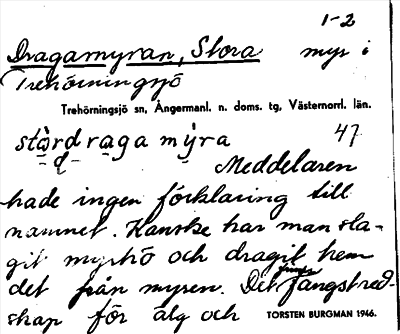 1-2
Dragamyran, Stora myr i
Trehörningsjö
Trehörningsjö sn, Ångermanl. n. doms. tg, Västernorrl. län.
stòrdraga mỳra 47
Meddelaren
hade ingen förklaring till
namnet. Kanske har man sla-
git myrhö och dragit hem
det från myren. Det finns fångstred-
skap för älg och TORSTEN BURGMAN 1946.